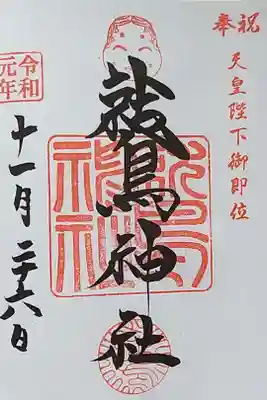 奉祝
天皇陛下御即位
鷲神社
鷲神社
令和
元年
十一月二十六日